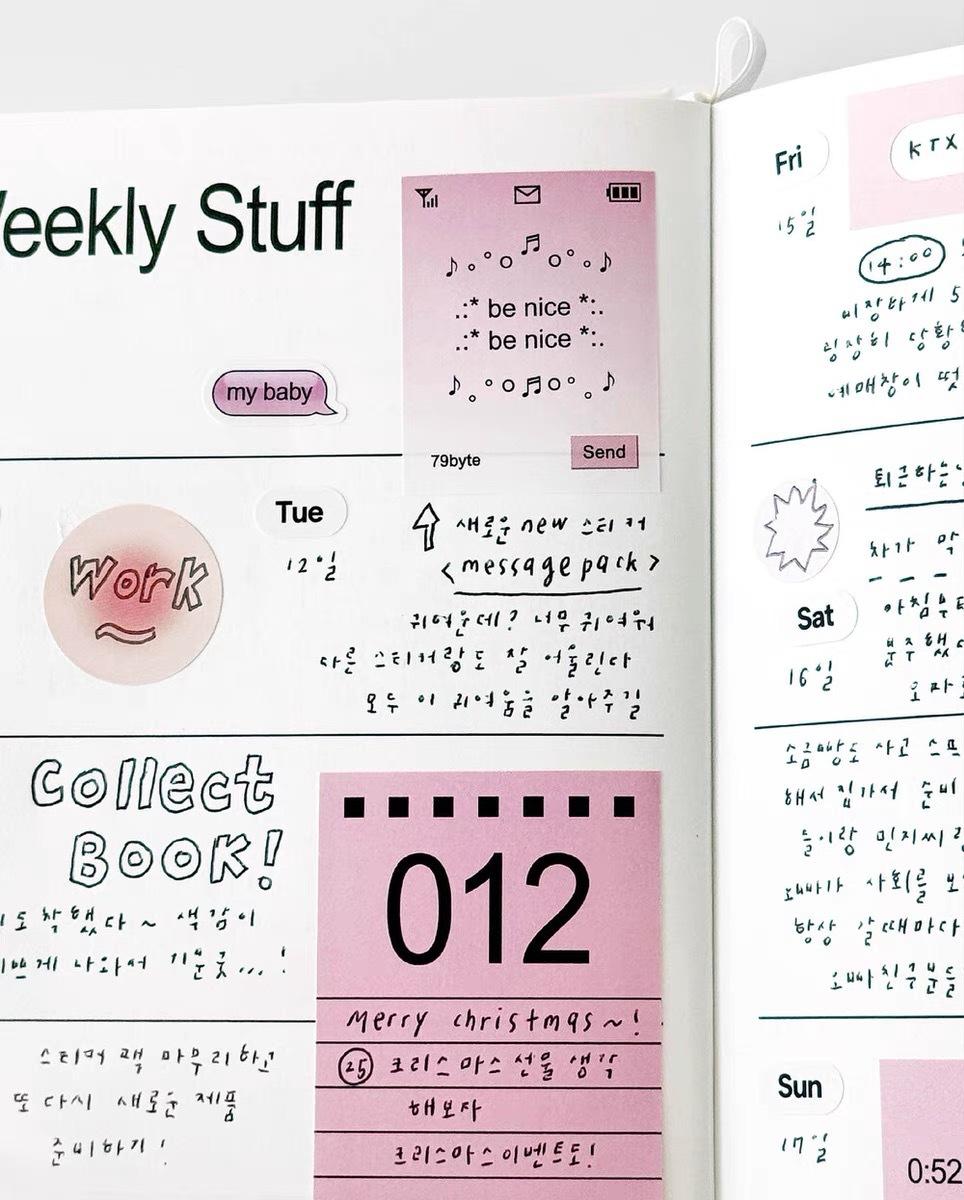 Weekly Stuff
be nice
be nice
my baby
79byte
Send
Work
Tue
12일
새로운 new 스티커
<message pack>
귀여운데? 너무 귀여워
다른 스티커랑도 잘 어울린다
모두 이 귀여움을 알아주길
Collect
BOOK!
도착했다~ 색감이
나와서 기분굿...!
스티커 팩 마무리하고
또 다시 새로운 제품
준비하기!
012
Merry christmas~!
25 크리스마스 선물 생각
해보자
크리스마스이벤트도!
Fri
KTX
15일
14:00
비장하게 5
굉장히 당황
예매창이 떳
퇴근하는
차가 막
Sat
아침부터
16일
소금빵도 사고
해서 집가서 준비
들이랑 민지씨
오빠가 사회를
항상 갈때마다
오빠친구분들
Sun
17일
0:52